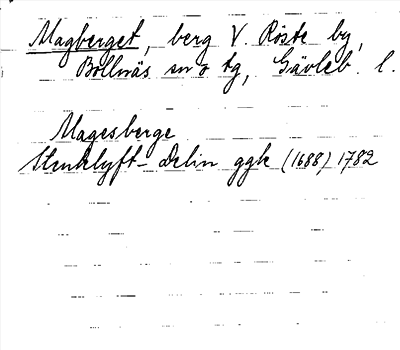 Magberget, berg V. Röste by,
Bollnäs sn o tg, Gävleb. l.
Magesberge
Stenklyft – Delin ggk (1688) 1782